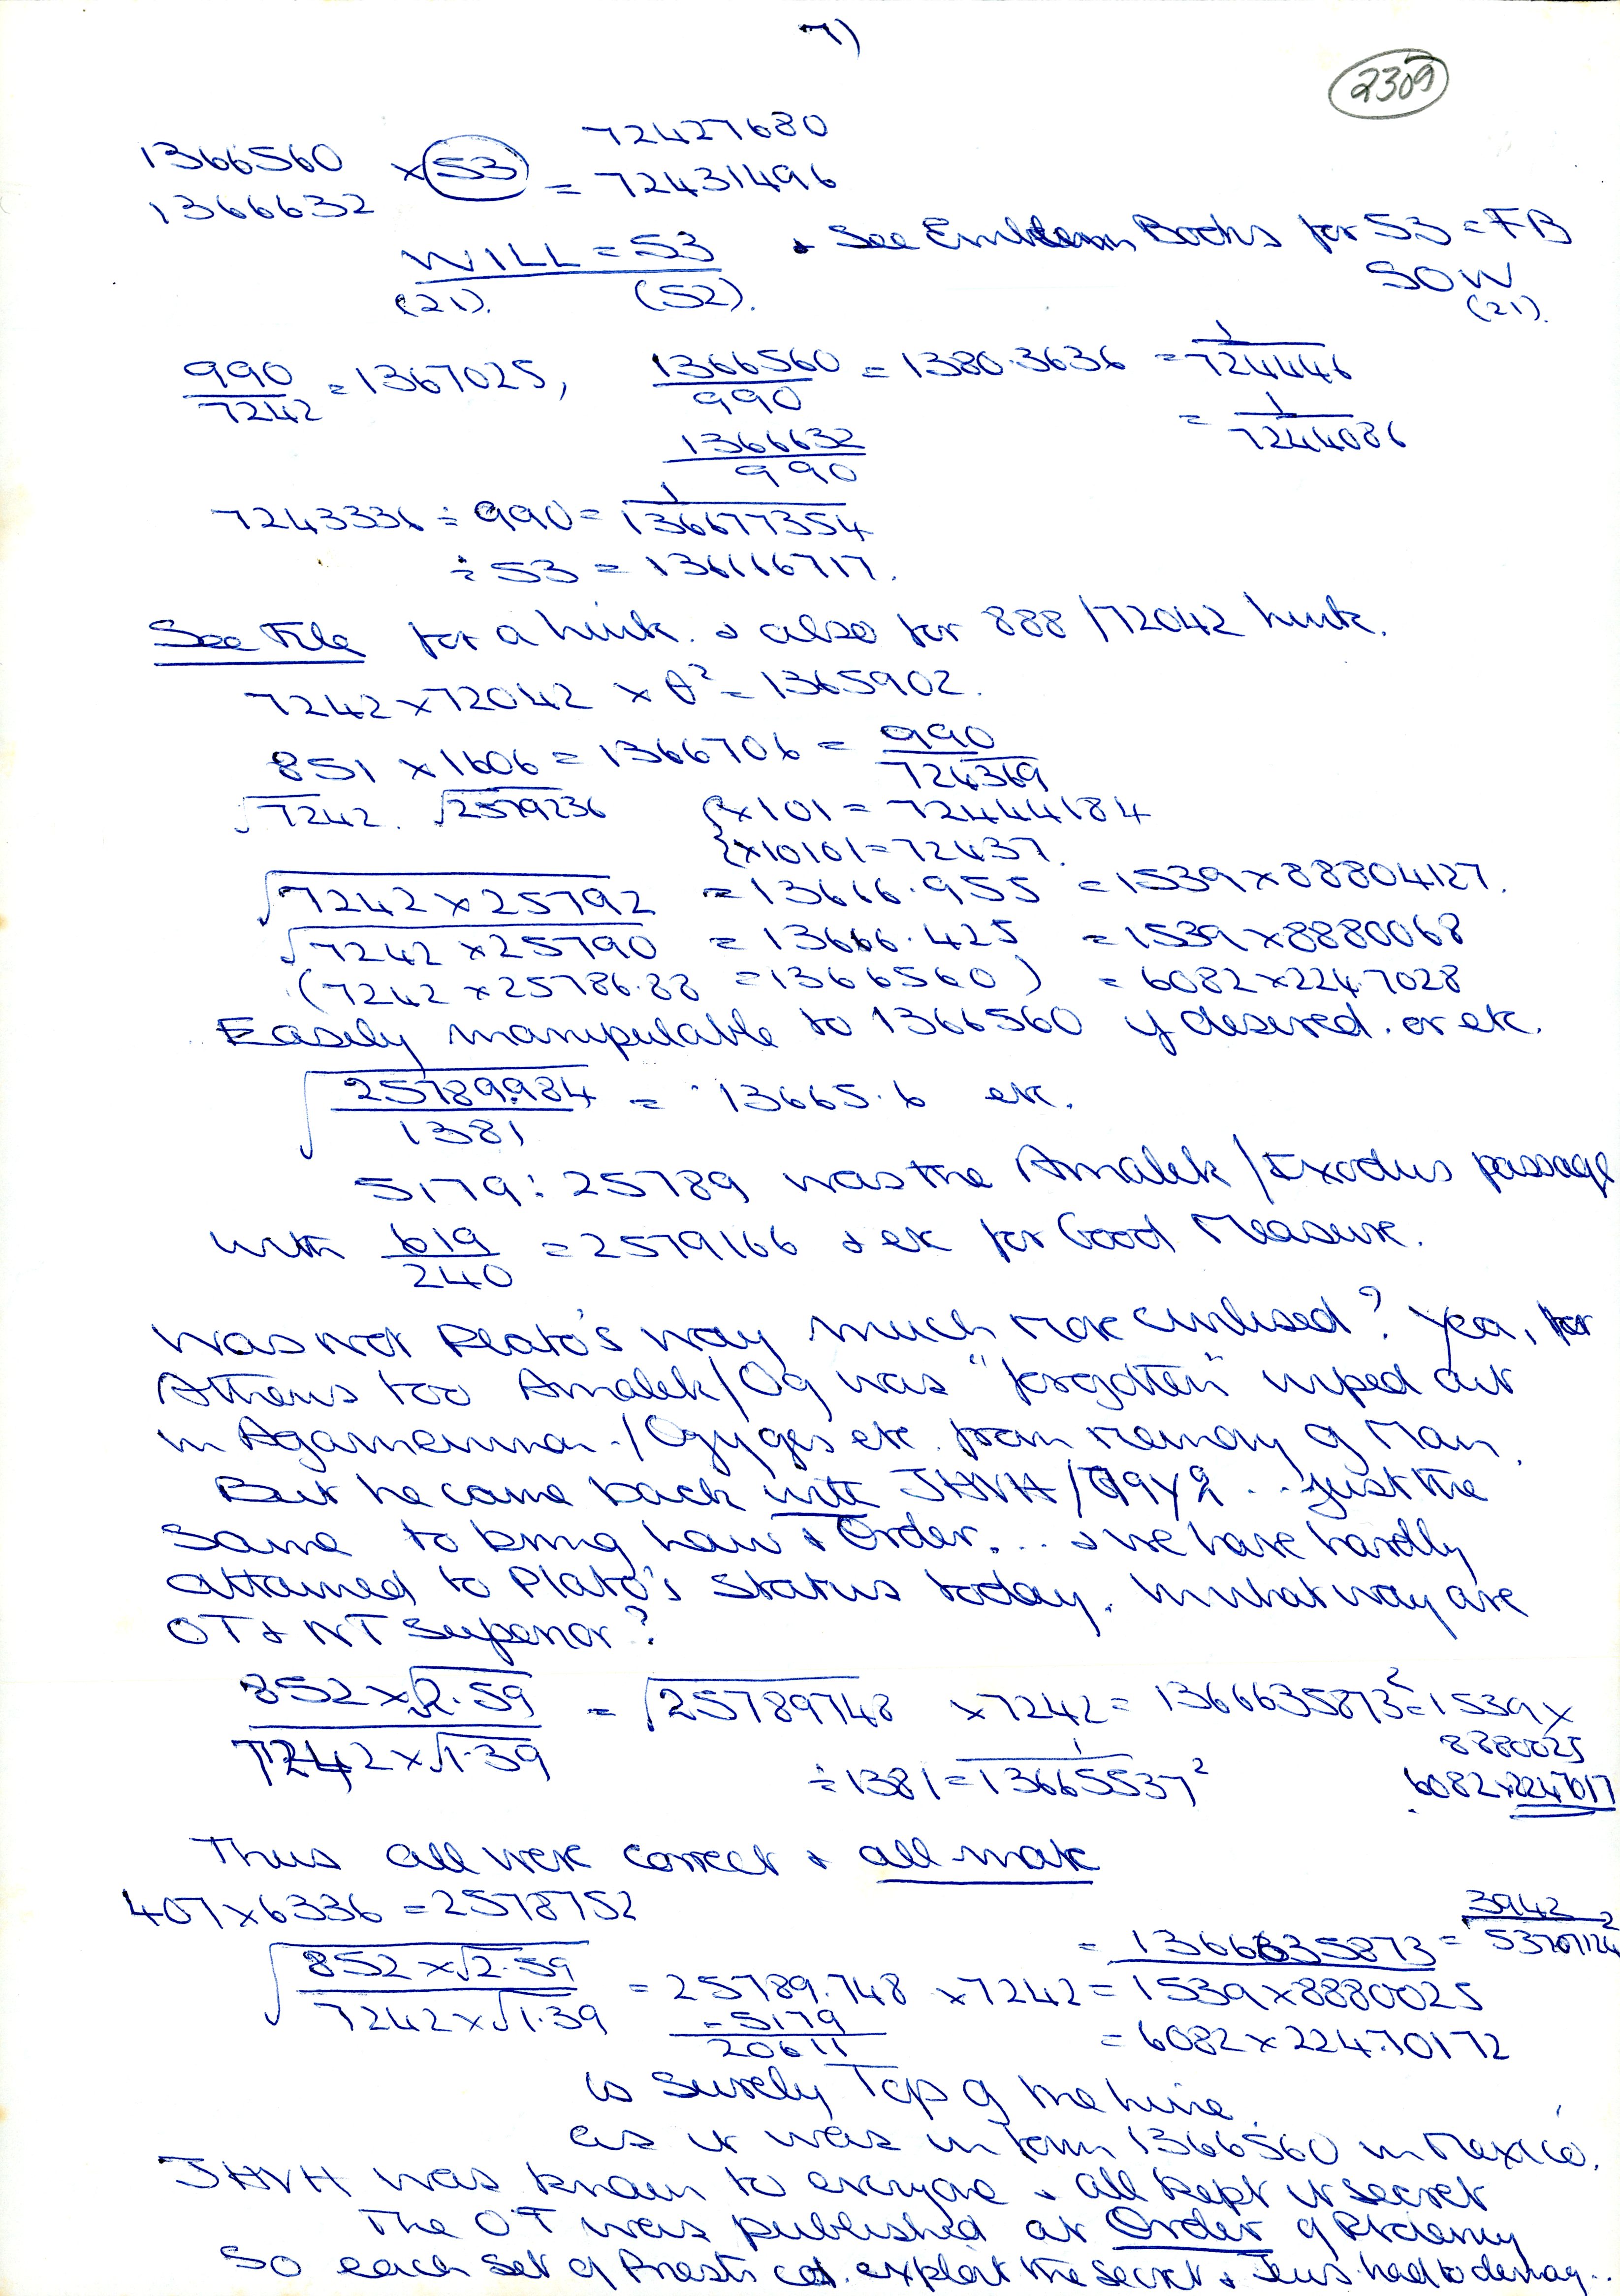 7)
2309
72427680
1366560 × 53 = 72431496
1366632
WILL = 53 & See Emblem Books for 53 = FB
(21). (52). SOW
(21).
990/7242 = 1367025, 1366560/990 = 1380.3636 = 1/724446
1366632/990 = 1/7244086
7243336 ÷ 990 = 1/136677354
÷ 53 = 136666717.
See File for a link. & also for 888/72042 link.
7242 × 72042 × θ² = 1365902.
851 × 1606 = 1366706 = 990/724369
√7242. √2579236 {×101 = 72444184
{×10101 = 72437.
√7242 × 25792 = 13666.955 = 1539 × 88804127.
√7242 × 25790 = 13666.425 = 1539 × 8880068
(7242 × 25786.88 = 1366560) = 6082 × 224.7028
Easily manipulable to 1366560 if desired. or etc.
√25789.984/1381 = 13665.6 etc.
5179 : 25789 was the Amalek/Exodus passage
with 619/240 = 2579166 & etc for Good Measure.
Was not Plato's way much more civilised? Yea, for
Athens too Amalek/Og was "forgotten" wiped out
in Agamemnon/Ogyges etc. from memory of Man.
But he came back with JHVH/ .. just the
same to bring Law & Order... & we have hardly
attained to Plato's status today. In what way are
OT & NT superior?
852 × √2.59 / 7242 × √1.39 = √25789748 × 7242 = 1366635873² = 1539 ×
8880025
÷ 1381 = 1/13665537² 6082 × 2247017
Thus all were correct & all make
407 × 6336 = 2578752
= 1366635873 = 3942/53707124²
√852 × √2.59 / 7242 × √1.39 = 25789.748 × 7242 = 1539 × 8880025
- 5179
20611 = 6082 × 224.70172
is surely Top of the line.
as it was in form 1366560 in Mexico.
JHVH was known to everyone & all kept it secret
The OT was published at Order of Ptolemy
So each set of Priests cd. exploit the secret & Jews had to